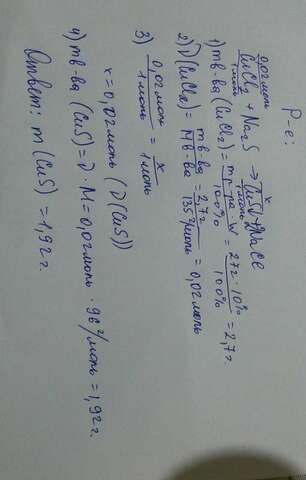 Р-е:
0,02моль x
CuCl₂ + Na₂S → CuS↓ + 2NaCl
1моль 1моль
1) mв-ва (CuCl₂) = mр-ра · w / 100% = 27г · 10% / 100% = 2,7г.
2) ν(CuCl₂) = mв-ва / Mв-ва = 2,7г / 135г/моль = 0,02моль
3) 0,02моль / 1моль = x / 1моль
x = 0,02моль (ν(CuS))
4) mв-ва (CuS) = ν · M = 0,02моль · 96г/моль = 1,92г.
Ответ: m(CuS) = 1,92г.